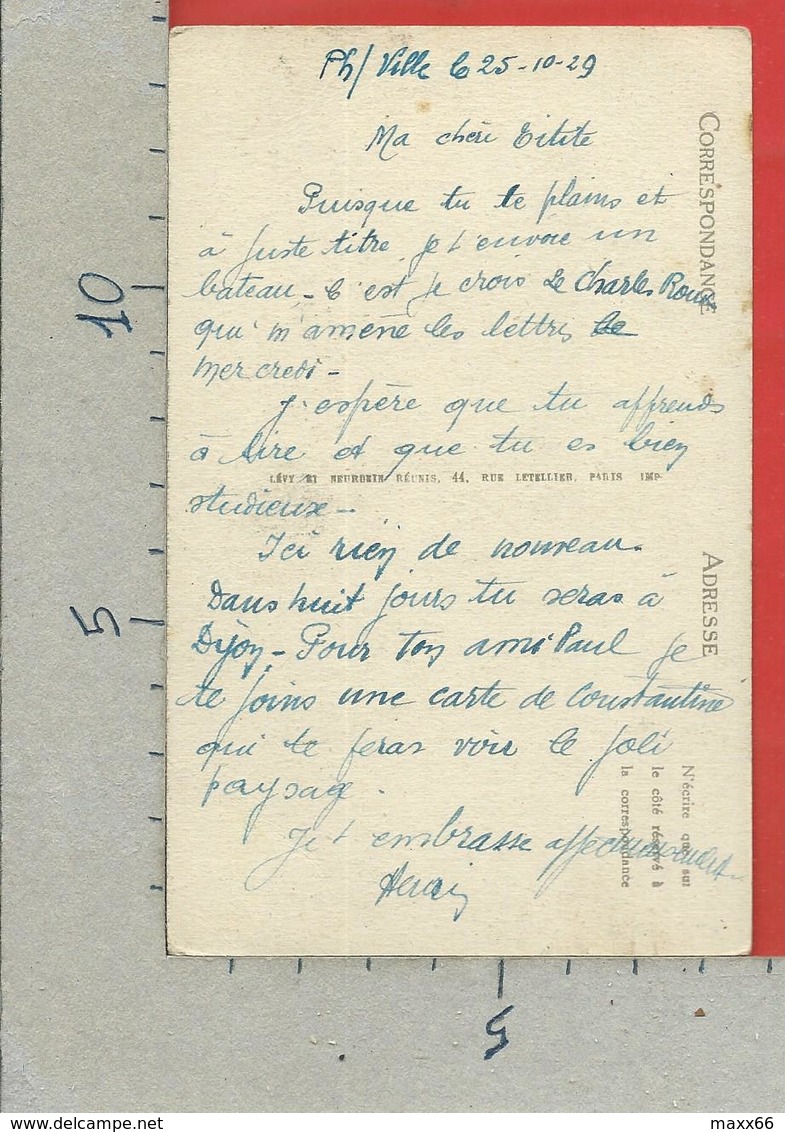 Ph/Ville le 25-10-29
Ma chèri Titite
Puisque tu te plains et
à juste titre je t'envoie un
bateau - C'est je crois le Charles Roux
qui m'amène les lettres le
mercredi -
J'espère que tu apprends
à lire et que tu es bien
studieuse -
Ici rien de nouveau.
Dans huit jours tu seras à
Dijon - Pour ton ami Paul je
te joins une carte de Constantine
qui te feras voir le joli
paysage.
Je t'embrasse affectueusement -
Henri
CORRESPONDANCE
ADRESSE
LÉVY ET NEURDEIN RÉUNIS, 44, RUE LETELLIER, PARIS IMP.
N'écrire que sur
le côté réservé à
la correspondance
10
5
5
maxx66